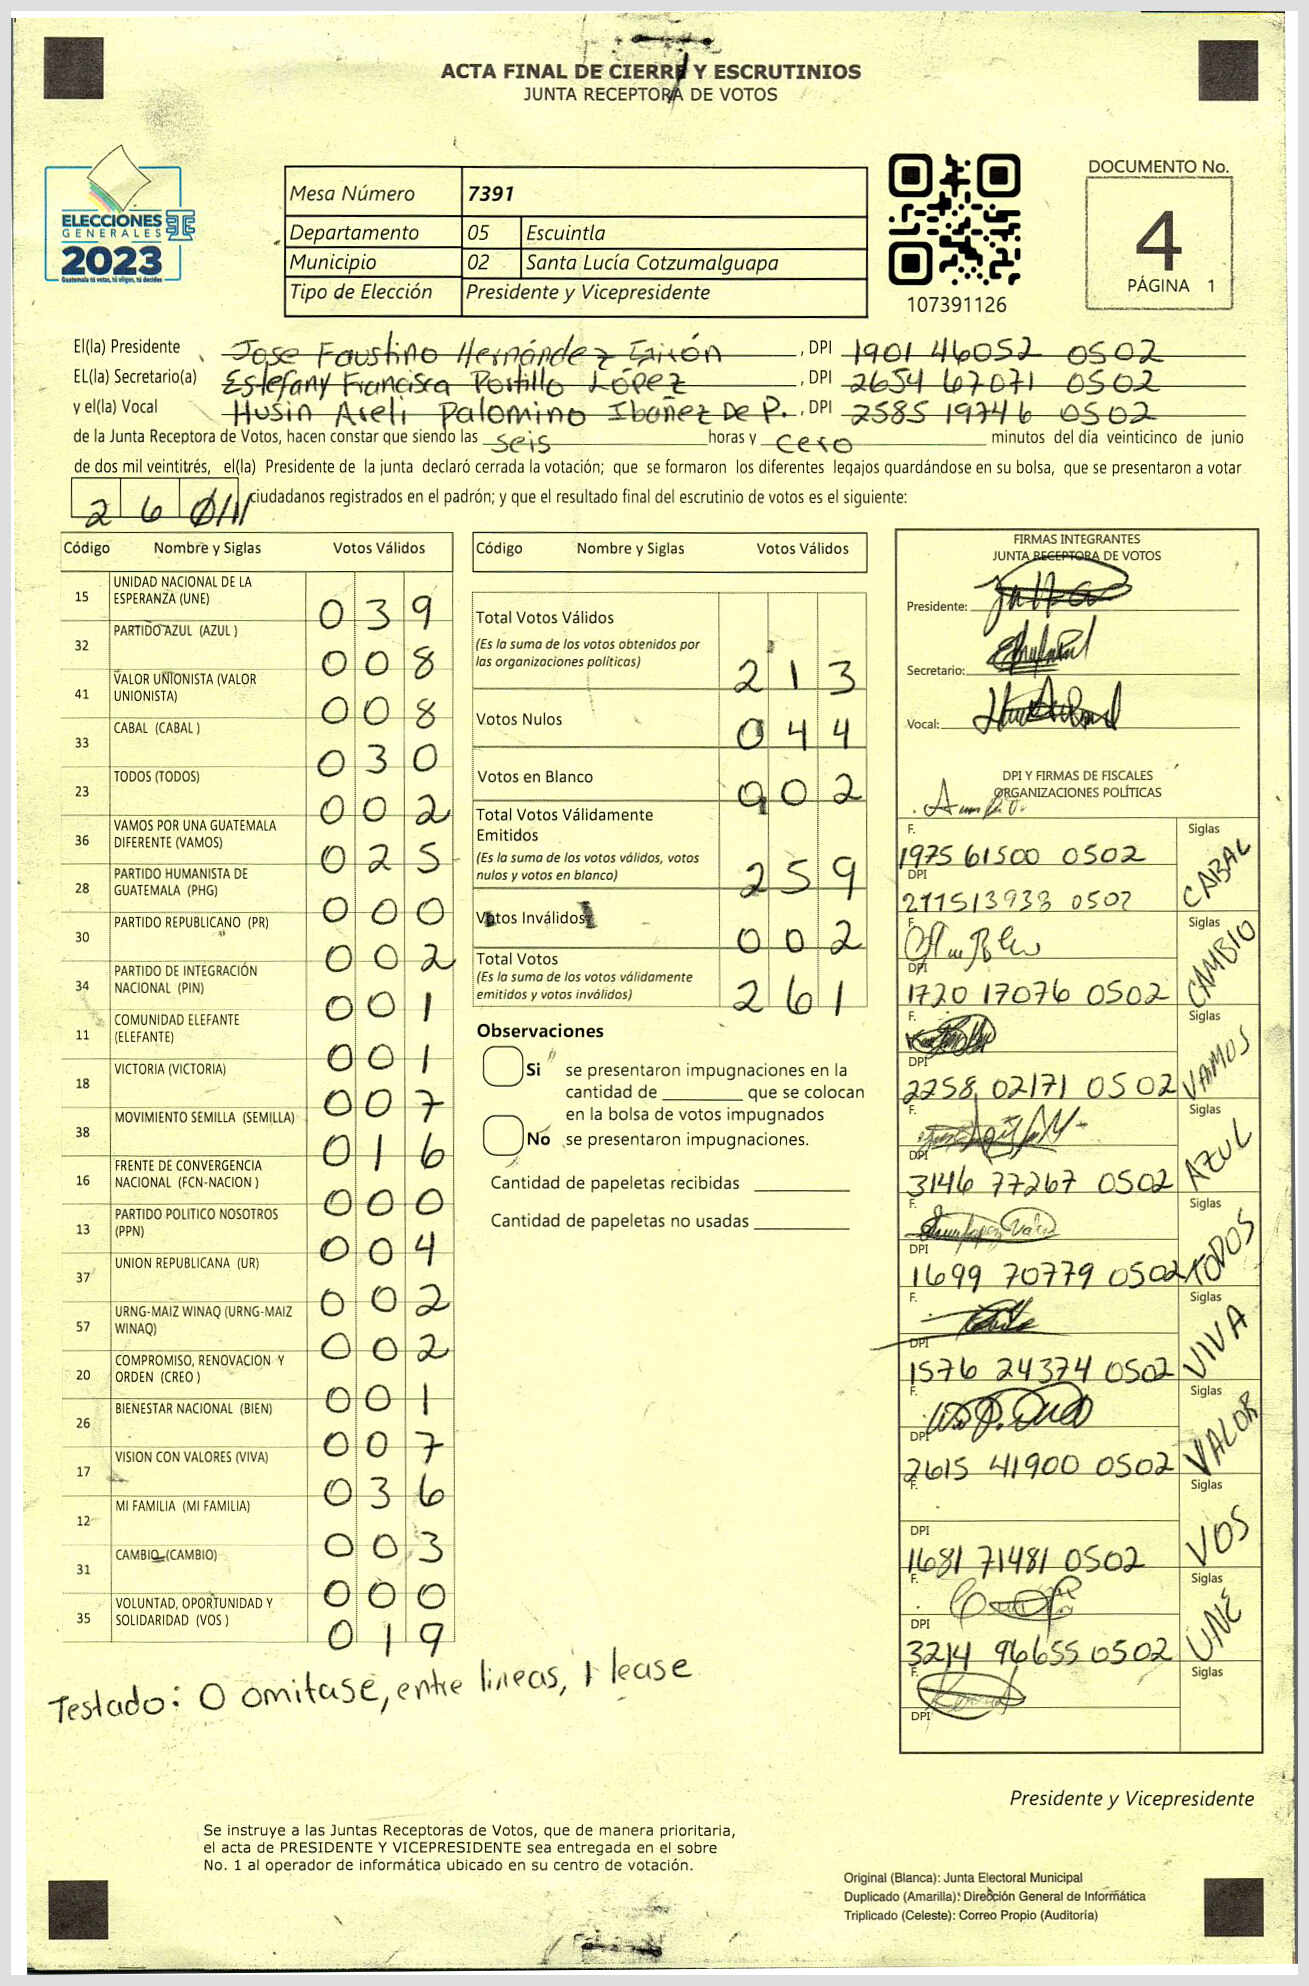 ACTA FINAL DE CIERRE Y ESCRUTINIOS
JUNTA RECEPTORA DE VOTOS
ELECCIONES
GENERALES
2023
Guatemala tú votas, tú eliges, tú decides
Mesa Número 7391
Departamento 05 Escuintla
Municipio 02 Santa Lucía Cotzumalguapa
Tipo de Elección Presidente y Vicepresidente
107391126
DOCUMENTO No.
4
PÁGINA 1
El(la) Presidente Jose Faustino Hernández, DPI 1901 46052 0502
EL(la) Secretario(a) Estefany Francisca Portillo López, DPI 2654 67071 0502
y el(la) Vocal Husin Areli Palomino Ibañez De P., DPI 2585 19746 0502
de la Junta Receptora de Votos, hacen constar que siendo las seis horas y cero minutos del día veinticinco de junio
de dos mil veintitrés, el(la) Presidente de la junta declaró cerrada la votación; que se formaron los diferentes legajos guardándose en su bolsa, que se presentaron a votar
2 6 ciudadanos registrados en el padrón; y que el resultado final del escrutinio de votos es el siguiente:
Código Nombre y Siglas Votos Válidos
15 UNIDAD NACIONAL DE LA
ESPERANZA (UNE) 0 3 9
32 PARTIDO AZUL (AZUL ) 0 0 8
41 VALOR UNIONISTA (VALOR
UNIONISTA) 0 0 8
33 CABAL (CABAL ) 0 3 0
23 TODOS (TODOS) 0 0 2
36 VAMOS POR UNA GUATEMALA
DIFERENTE (VAMOS) 0 2 5
28 PARTIDO HUMANISTA DE
GUATEMALA (PHG) 0 0 0
30 PARTIDO REPUBLICANO (PR) 0 0 2
34 PARTIDO DE INTEGRACIÓN
NACIONAL (PIN) 0 0 1
11 COMUNIDAD ELEFANTE
(ELEFANTE) 0 0 1
18 VICTORIA (VICTORIA) 0 0 7
38 MOVIMIENTO SEMILLA (SEMILLA) 0 1 6
16 FRENTE DE CONVERGENCIA
NACIONAL (FCN-NACION ) 0 0 0
13 PARTIDO POLITICO NOSOTROS
(PPN) 0 0 4
37 UNION REPUBLICANA (UR) 0 0 2
57 URNG-MAIZ WINAQ (URNG-MAIZ
WINAQ) 0 0 2
20 COMPROMISO, RENOVACION Y
ORDEN (CREO ) 0 0 1
26 BIENESTAR NACIONAL (BIEN) 0 0 7
17 VISION CON VALORES (VIVA) 0 3 6
12 MI FAMILIA (MI FAMILIA) 0 0 3
31 CAMBIO (CAMBIO) 0 0 0
35 VOLUNTAD, OPORTUNIDAD Y
SOLIDARIDAD (VOS ) 0 1 9
Testado: 0 omitase, entre lineas, 1 lease
Código Nombre y Siglas Votos Válidos
Total Votos Válidos
(Es la suma de los votos obtenidos por
las organizaciones políticas) 2 1 3
Votos Nulos 0 4 4
Votos en Blanco 0 0 2
Total Votos Válidamente
Emitidos
(Es la suma de los votos válidos, votos
nulos y votos en blanco) 2 5 9
Votos Inválidos 0 0 2
Total Votos
(Es la suma de los votos válidamente
emitidos y votos inválidos) 2 6 1
Observaciones
Si se presentaron impugnaciones en la
cantidad de ________ que se colocan
en la bolsa de votos impugnados
No se presentaron impugnaciones.
Cantidad de papeletas recibidas ________
Cantidad de papeletas no usadas ________
FIRMAS INTEGRANTES
JUNTA RECEPTORA DE VOTOS
Presidente:
Secretario:
Vocal:
DPI Y FIRMAS DE FISCALES
ORGANIZACIONES POLÍTICAS
F. Siglas
1975 61500 0502 CABAL
DPI
0502
F. Siglas
CAMBIO
DPI
1720 17076 0502
F. Siglas
VAMOS
DPI
2258 02171 0502
F. Siglas
AZUL
DPI
3146 77267 0502
F. Siglas
TODOS
DPI
1699 70779 0502
F. Siglas
VIVA
DPI
1576 24374 0502
F. Siglas
VALOR
DPI
2615 41900 0502
F. Siglas
VOS
DPI
1681 71481 0502
F. Siglas
UNE
DPI
3214 96655 0502
F. Siglas
DPI
Presidente y Vicepresidente
Se instruye a las Juntas Receptoras de Votos, que de manera prioritaria,
el acta de PRESIDENTE Y VICEPRESIDENTE sea entregada en el sobre
No. 1 al operador de informática ubicado en su centro de votación.
Original (Blanca): Junta Electoral Municipal
Duplicado (Amarilla): Dirección General de Informática
Triplicado (Celeste): Correo Propio (Auditoría)